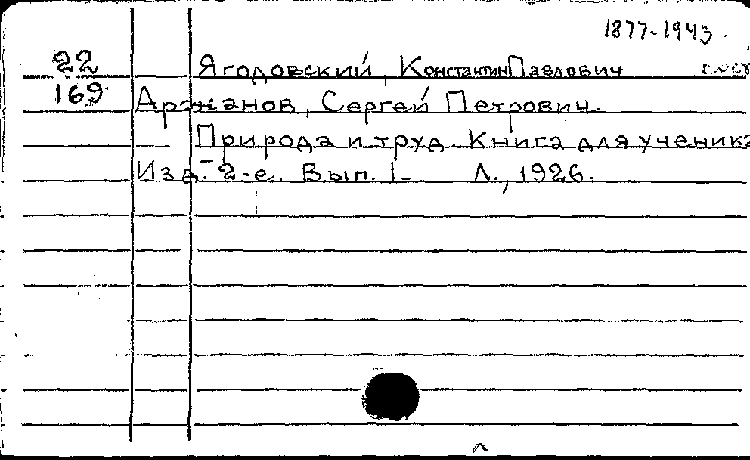 1877-1943.
22 Ягодовский, Константин Павлович
169 Аржанов, Сергей Петрович.
Природа и труд. Книга для ученика
Изд. 2-е. Вып. 1- Л., 1926.